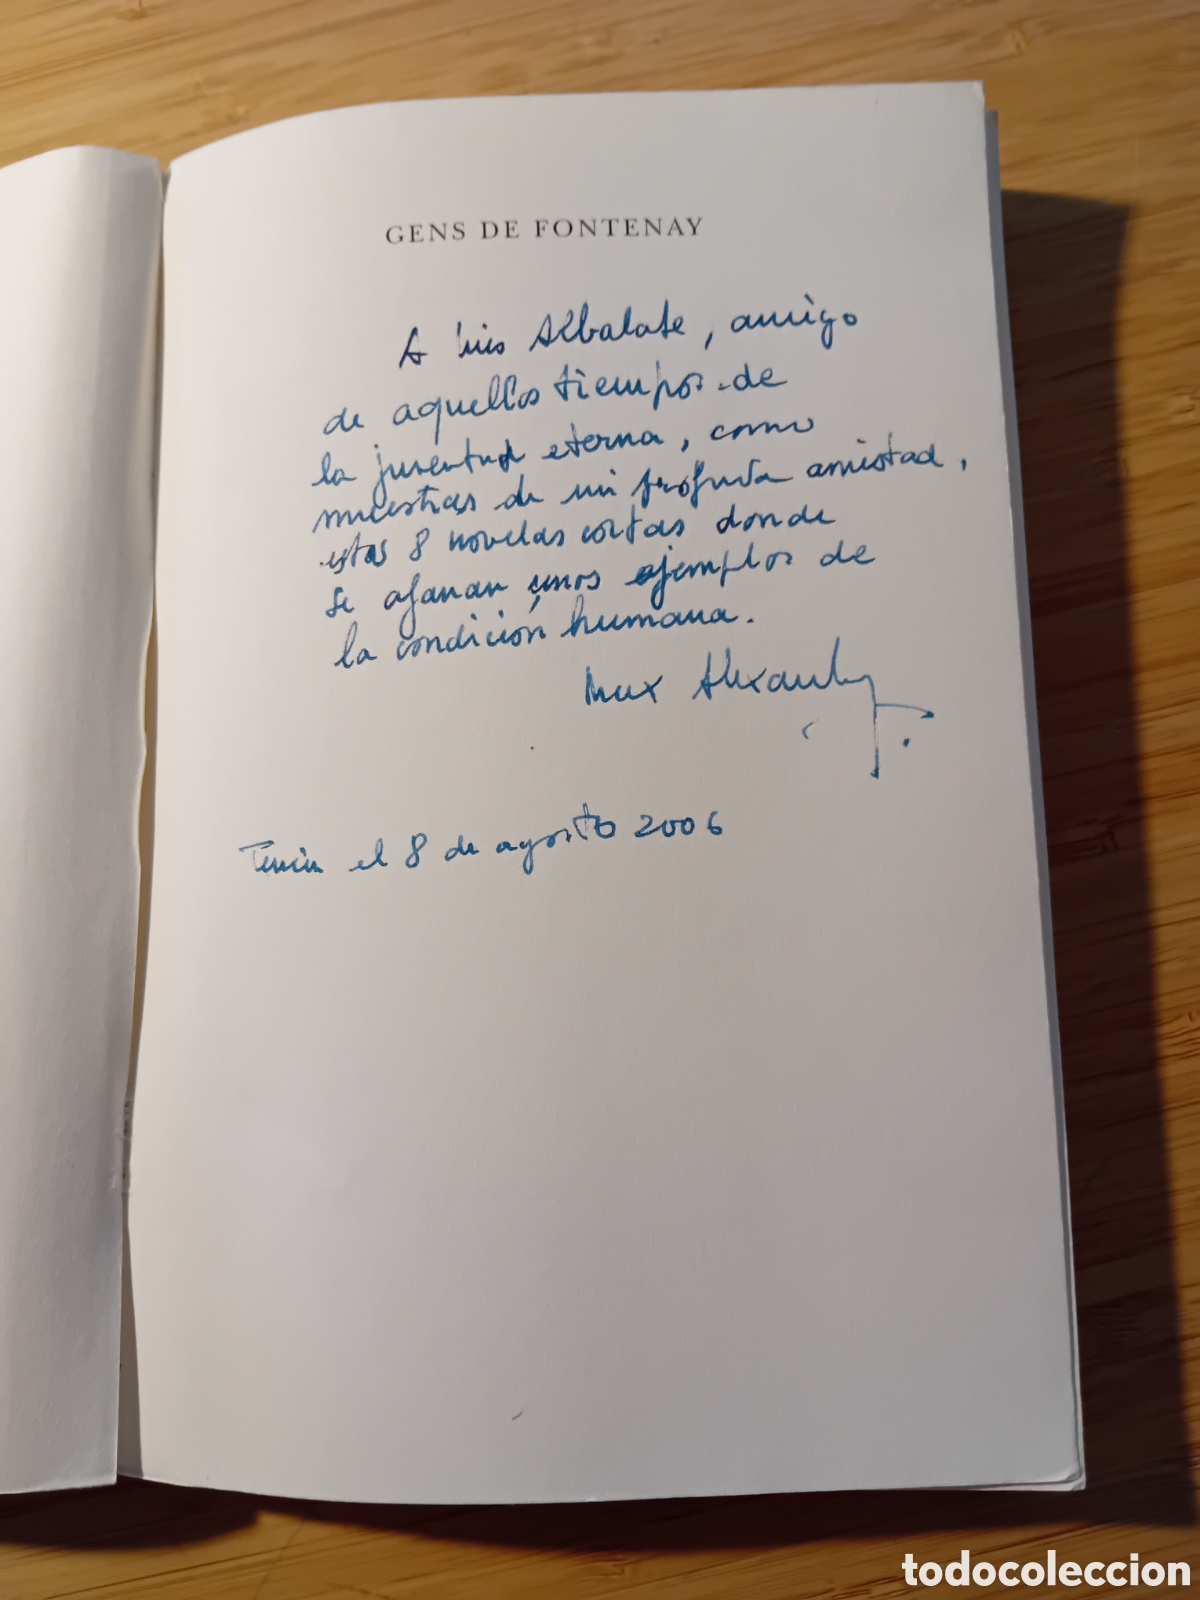 GENS DE FONTENAY
A Luis Albalate, amigo
de aquellos tiempos de
la juventud eterna, como
muestras de mi profunda amistad,
estas 8 novelas cortas donde
se afanan unos ejemplos de
la condición humana.
Max
el 8 de agosto 2006
todocoleccion